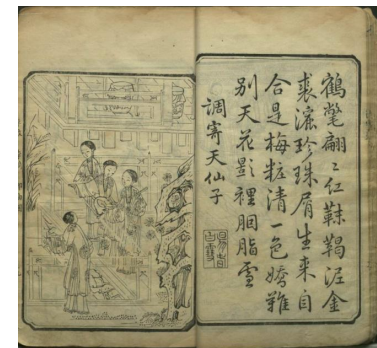 鶴氅翩〻紅靺鞨泥金
裘濕珍珠屑生来自
合是梅粧清一色嬌難
別天花影裡胭脂雪
調寄天仙子